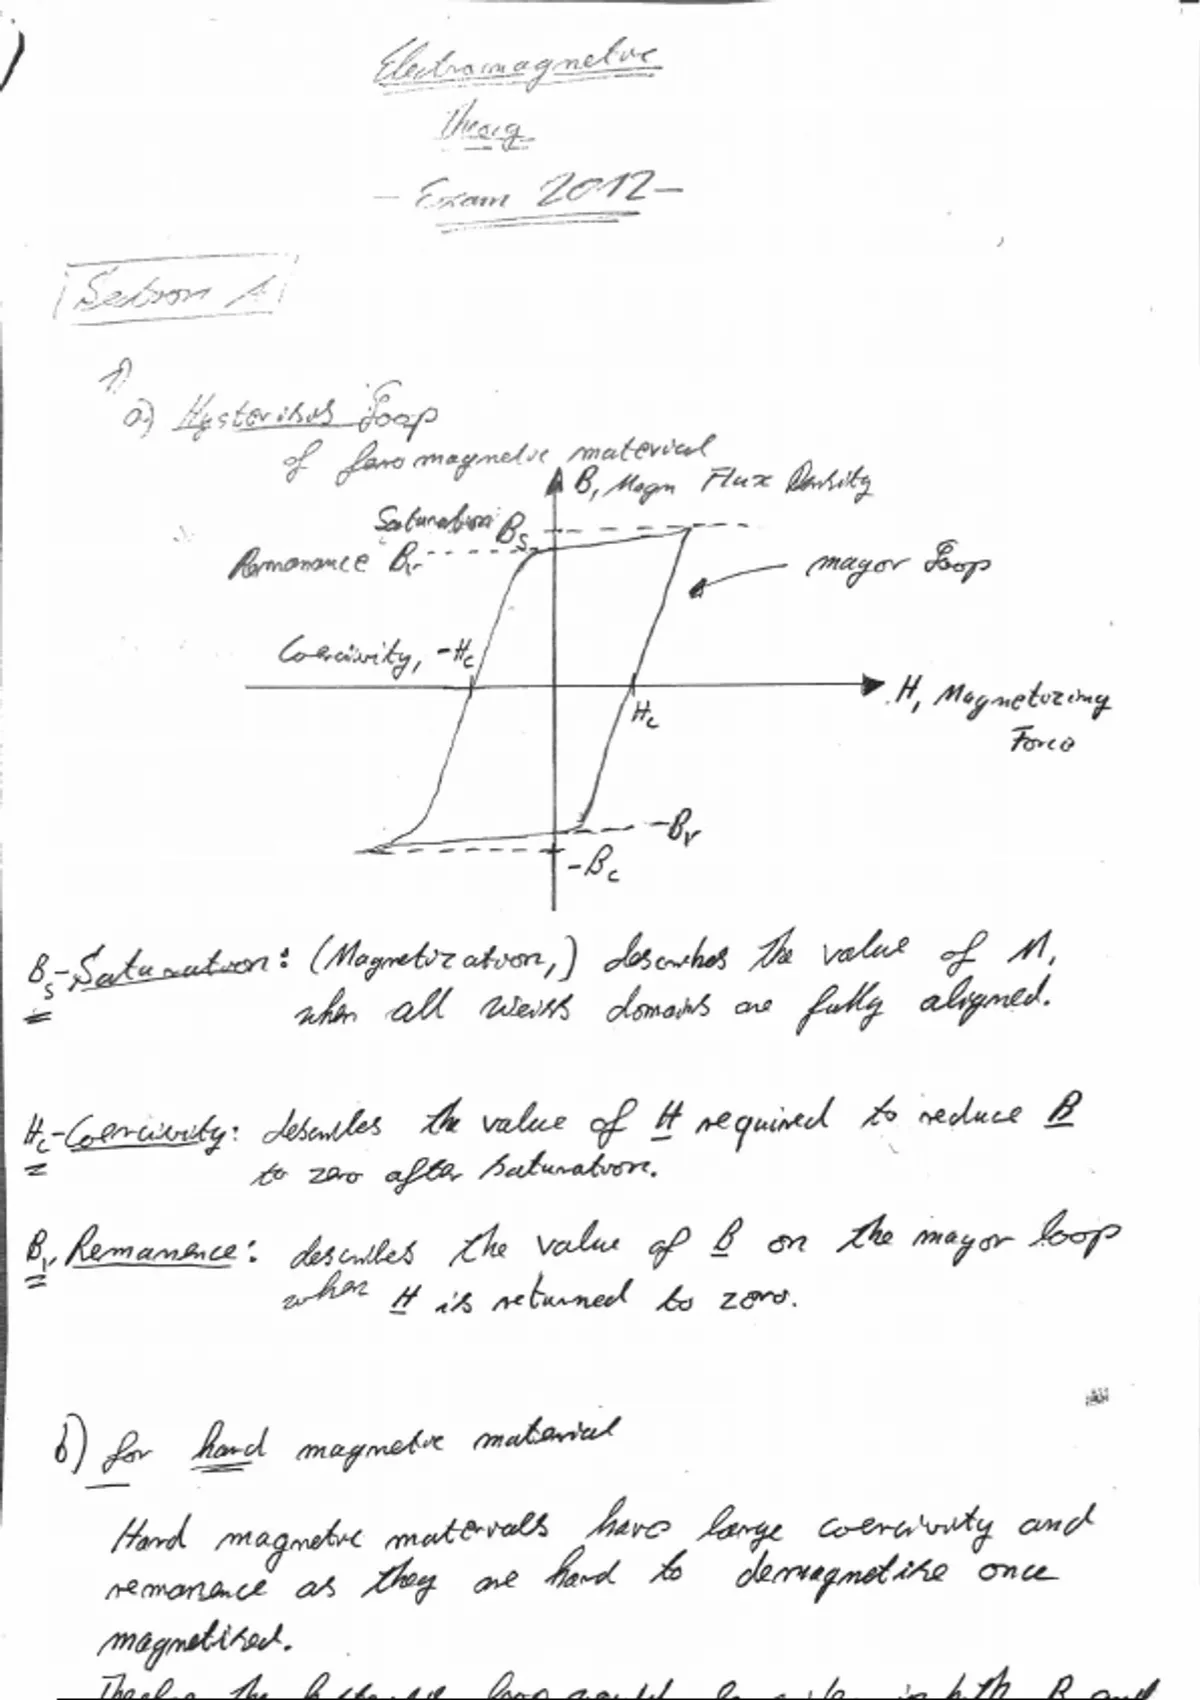 Electromagnetic
Theory
- Exam 2012 -
Section A
1)
a) Hysterisis Loop
of ferro magnetic material
B, Magn Flux Density
Saturation Bs
Remanance Br
mayor Loop
Coercivity, -Hc
Hc
H, Magnetizing
Force
-Br
-Bc
Bs-Saturation: (Magnetization,) describes the value of M,
when all weiss domains are fully aligned.
Hc-Coercivity: describes the value of H required to reduce B
to zero after saturation.
Br Remanence: describes the value of B on the mayor loop
when H is returned to zero.
b) for hard magnetic material
Hard magnetic materials have large coercivity and
remanence as they are hard to demagnetise once
magnetised.